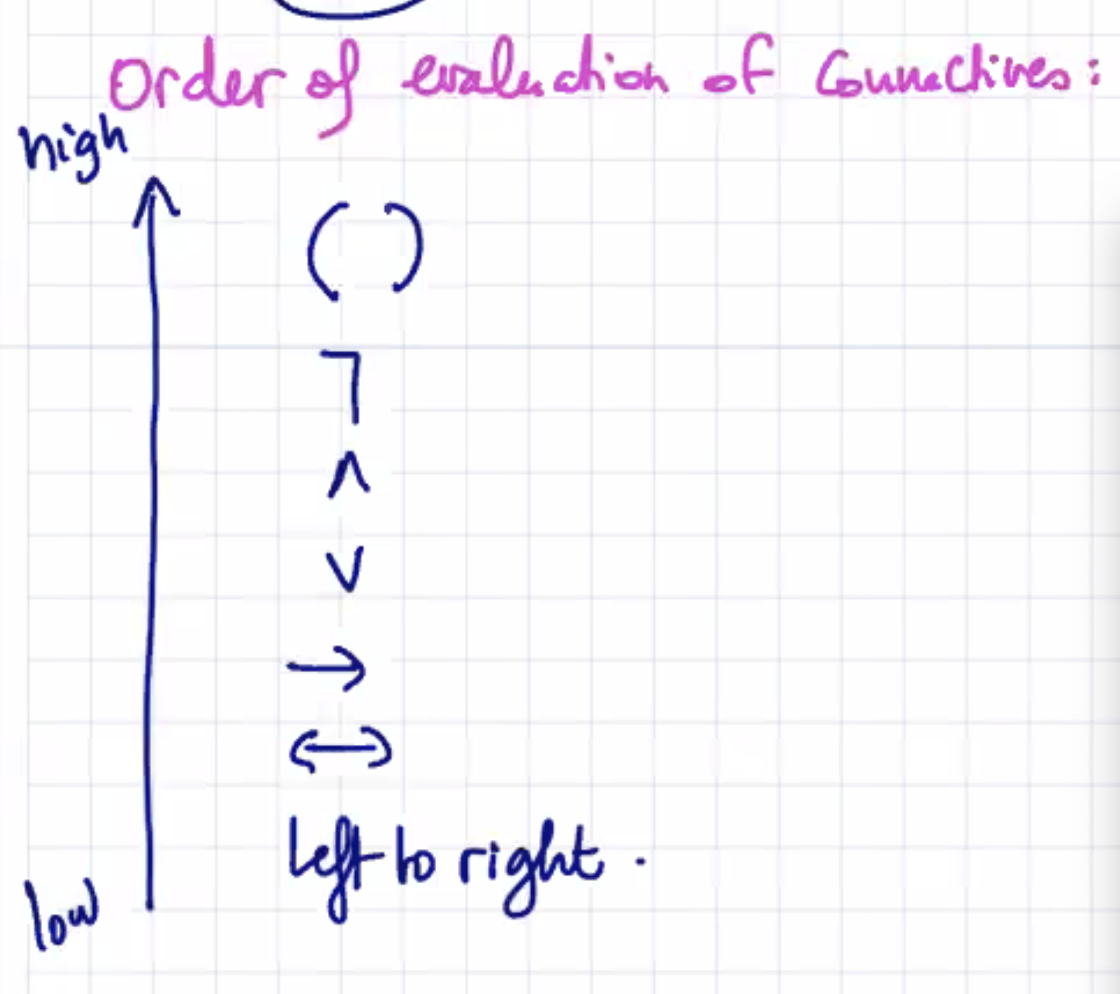 Order of evaluation of Connectives:
high
( )
¬
∧
∨
→
↔
left to right.
low